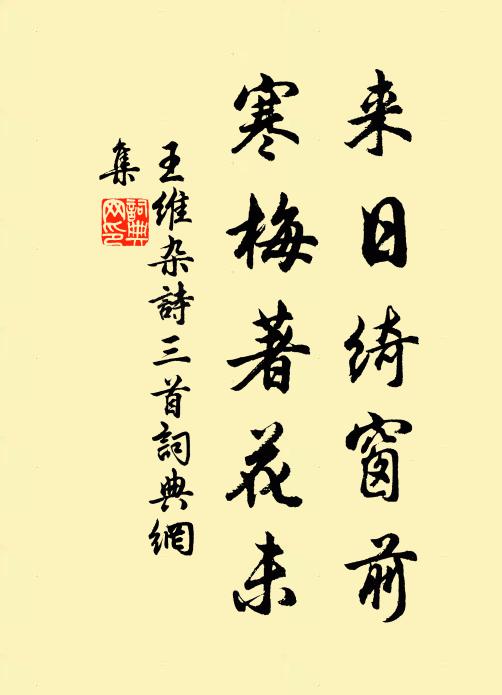 来日绮窗前
寒梅著花未
王維杂詩三首詞典網
集
詞典
网印